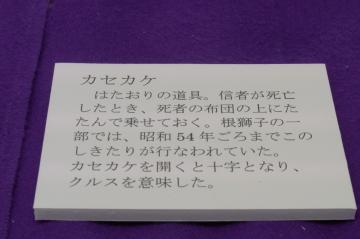 カセカケ
はたおりの道具。信者が死亡
したとき、死者の布団の上にた
たんで乗せておく。根獅子の一
部では、昭和 54 年ごろまでこの
しきたりが行なわれていた。
カセカケを開くと十字となり、
クルスを意味した。